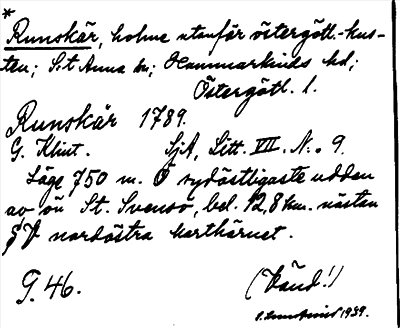 *
Runskär, holme utanför östergötl.-kus-
ten; S:t Anna sn; Hammarkinds hd;
Östergötl. l.
Runskär 1789.
G. Klint. SjA, Litt. VII. N:o 9.
Läge 750 m. O sydöstligaste udden
av ön St. Svensö, bel. 12,8 km. nästan
SV nordöstra karthörnet.
G. 46. (Vänd!)
1939.